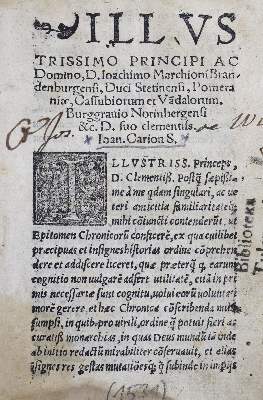 ILLVS
TRISSIMO PRINCIPI AC
Domino, D. Ioachimo Marchioni Bran
denburgensi, Duci Stetinensi, Pomera
niæ, Cassubiorum et Vādalorum.
Burggrauio Norinbergensi
&c. D. suo clementiss.
Ioan. Carion S.
ILLVSTRISS. Princeps,
D. Clementiß. Postq̃ sæpißi-
me à me qdam singulari, ac ve
teri amicitia familiaritateq;
mihi cōiuncti contenderūt, ut
Epitomen Chronicorū conficerē, ex qua quilibet
præcipuas et insignes historias ordine cōprehen
dere et addiscere liceret, quæ præterq̃ q, earum
cognitio non vulgarē adfert utilitatē, etiā in pri
mis necessariæ sunt cognitu, volui eorū voluntati
morē gerere, et hæc Chronica cōscribenda mihi
sumpsi, in quib. pro uirili, ordine q̃ potui fieri ac
curatiß. monarchias, in quas DEVS mundū iā inde
ab initio redactū mirabiliter cōseruauit, et alias
insignes res gestas mutationesq; q̃ subinde in impijs
Biblioteca
(1531)